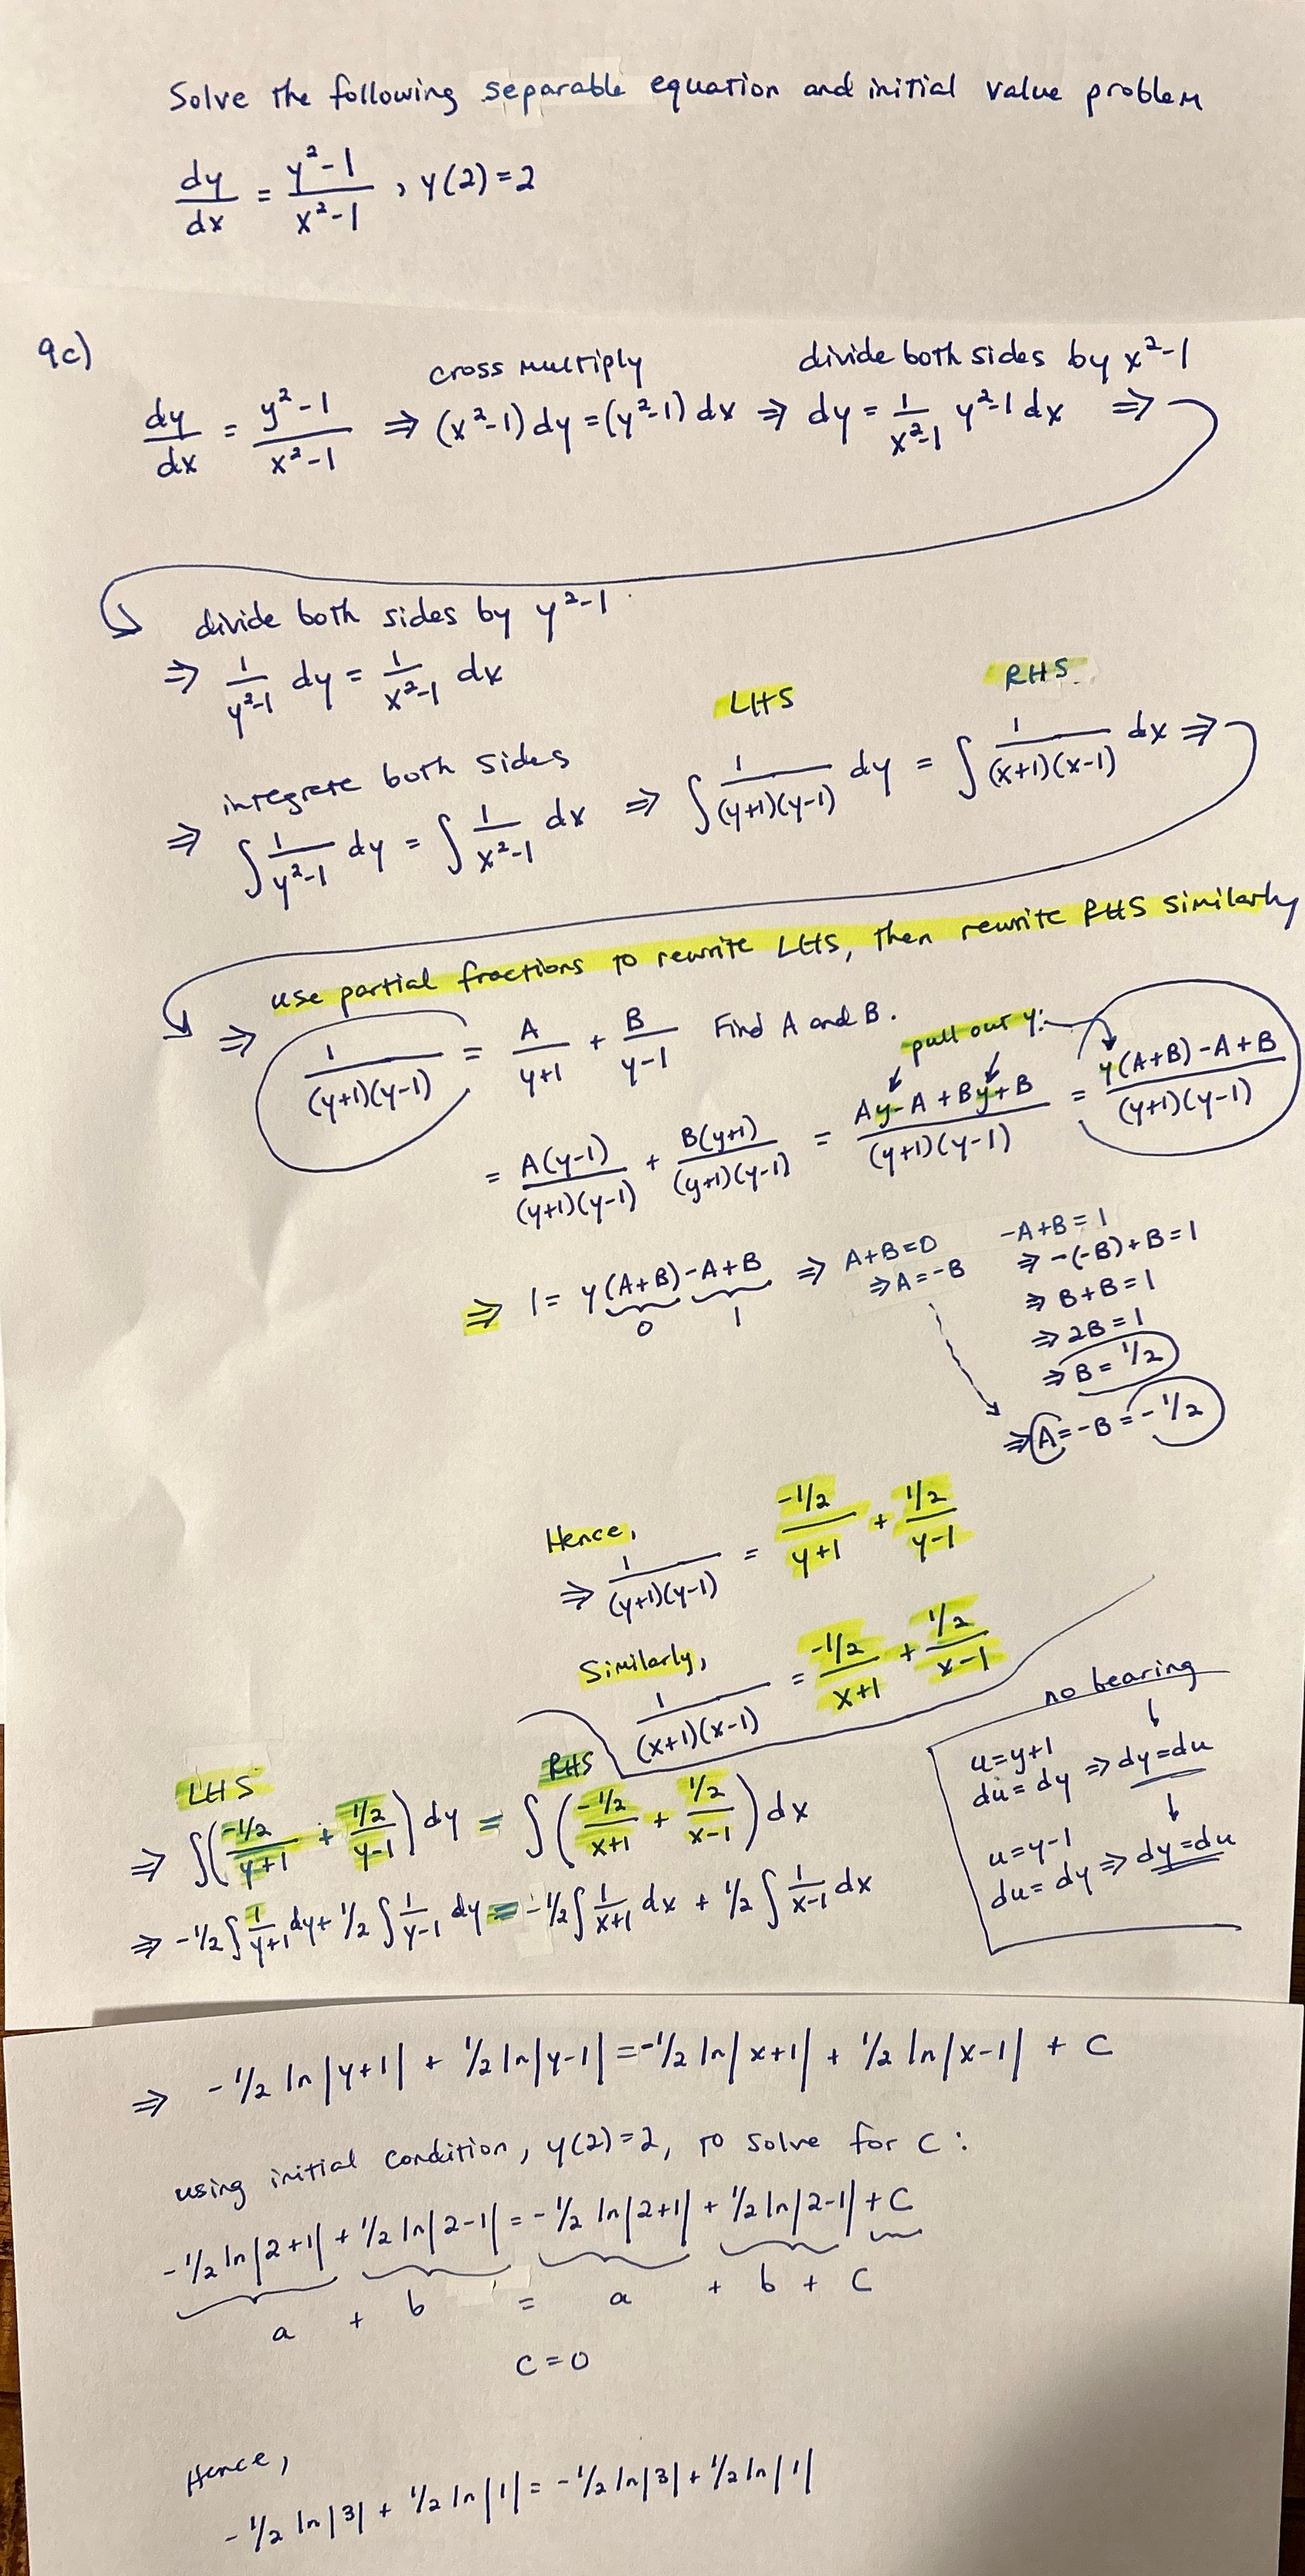 Solve the following separable equation and initial value problem
dy/dx = (y²-1)/(x²-1), y(2)=2
9c)
cross multiply divide both sides by x²-1
dy/dx = (y²-1)/(x²-1) ⇒ (x²-1) dy = (y²-1) dx ⇒ dy = 1/(x²-1) y²-1 dx ⇒
divide both sides by y²-1
⇒ 1/(y²-1) dy = 1/(x²-1) dx
LHS RHS
integrate both sides
⇒ ∫ 1/(y²-1) dy = ∫ 1/(x²-1) dx ⇒ ∫ 1/((y+1)(y-1)) dy = ∫ 1/((x+1)(x-1)) dx ⇒
use partial fractions to rewrite LHS, then rewrite RHS similarly
⇒ 1/((y+1)(y-1)) = A/(y+1) + B/(y-1) Find A and B.
pull out y:
= A(y-1)/((y+1)(y-1)) + B(y+1)/((y+1)(y-1)) = (Ay-A+By+B)/((y+1)(y-1)) = (y(A+B)-A+B)/((y+1)(y-1))
⇒ 1 = y(A+B)-A+B ⇒ A+B=0 -A+B=1
0 1
⇒ A=-B ⇒ -(-B)+B=1
⇒ B+B=1
⇒ 2B=1
⇒ B=1/2
⇒ A=-B=-1/2
Hence,
⇒ 1/((y+1)(y-1)) = (-1/2)/(y+1) + (1/2)/(y-1)
Similarly,
1/((x+1)(x-1)) = (-1/2)/(x+1) + (1/2)/(x-1)
no bearing
u=y+1
du=dy ⇒ dy=du
u=y-1
du=dy ⇒ dy=du
LHS RHS
⇒ ∫((-1/2)/(y+1) + (1/2)/(y-1)) dy = ∫((-1/2)/(x+1) + (1/2)/(x-1)) dx
⇒ -1/2 ∫ 1/(y+1) dy + 1/2 ∫ 1/(y-1) dy = -1/2 ∫ 1/(x+1) dx + 1/2 ∫ 1/(x-1) dx
⇒ -1/2 ln|y+1| + 1/2 ln|y-1| = -1/2 ln|x+1| + 1/2 ln|x-1| + C
using initial condition, y(2)=2, to solve for C:
-1/2 ln|2+1| + 1/2 ln|2-1| = -1/2 ln|2+1| + 1/2 ln|2-1| + C
a + b = a + b + C
C=0
Hence,
-1/2 ln|3| + 1/2 ln|1| = -1/2 ln|3| + 1/2 ln|1|